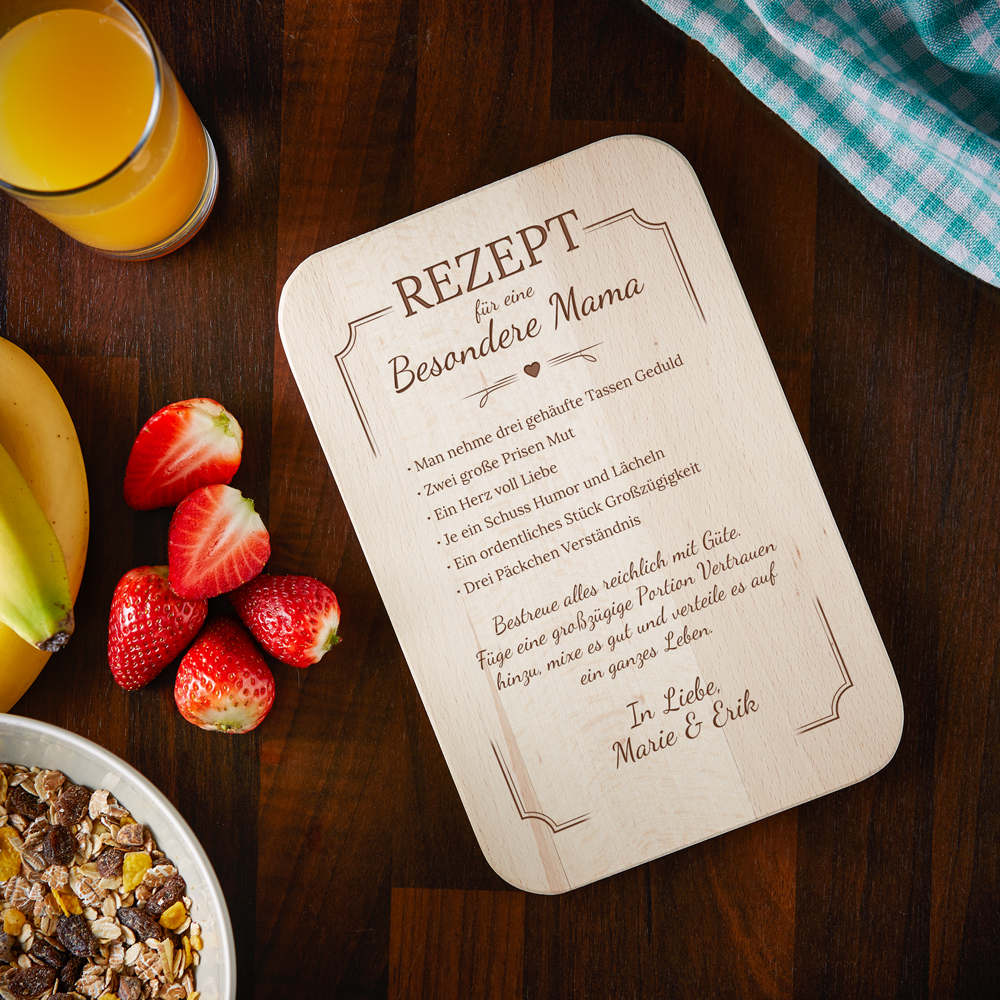 REZEPT
für eine
Besondere Mama
· Man nehme drei gehäufte Tassen Geduld
· Zwei große Prisen Mut
· Ein Herz voll Liebe
· Je ein Schuss Humor und Lächeln
· Ein ordentliches Stück Großzügigkeit
· Drei Päckchen Verständnis
Bestreue alles reichlich mit Güte.
Füge eine großzügige Portion Vertrauen
hinzu, mixe es gut und verteile es auf
ein ganzes Leben.
In Liebe,
Marie & Erik